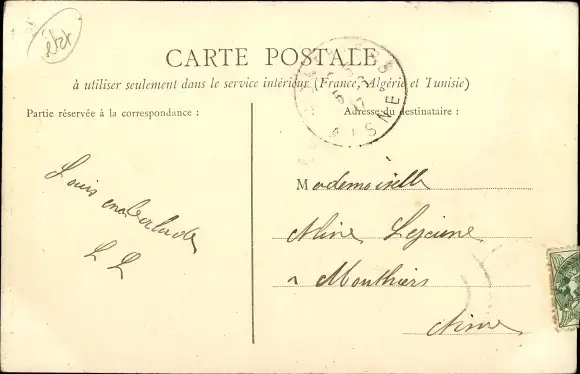 CARTE POSTALE
à utiliser seulement dans le service intérieur (France, Algérie et Tunisie)
Partie réservée à la correspondance :
Adresse du destinataire :
AISNE
Louis
L L
Mademoiselle
Aline Lejeune
à Monthiers
Aisne